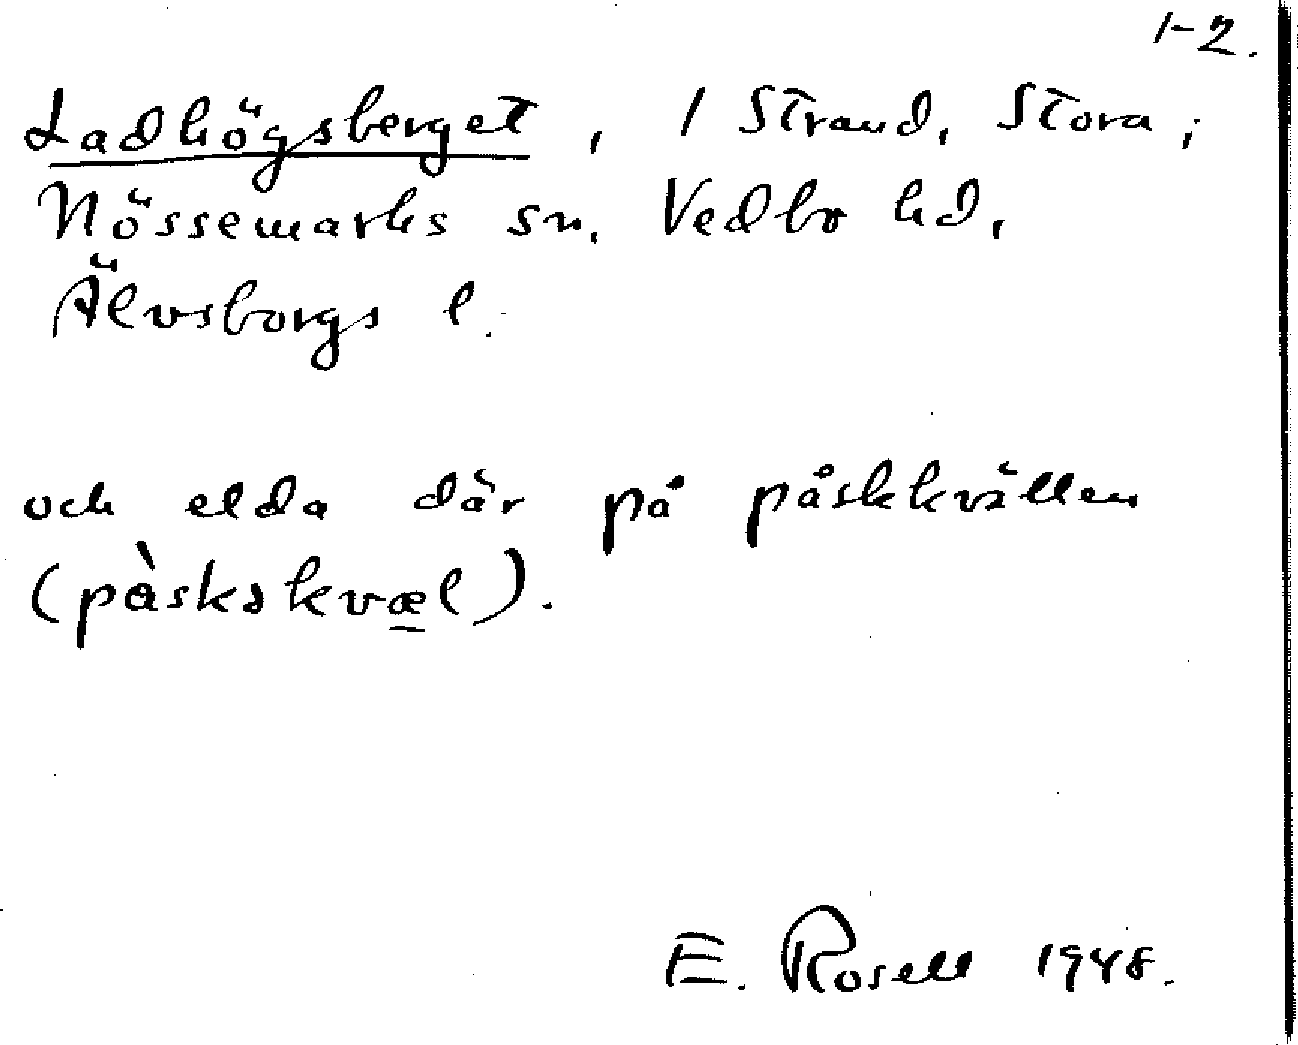 1-2.
Ladhögsberget, 1 Strand, Stora,
Nössemarks sn, Vedbo hd,
Älvsborgs l.
och elda där på påskkvällen
(pàskskvæl).
E. Rosell 1948.